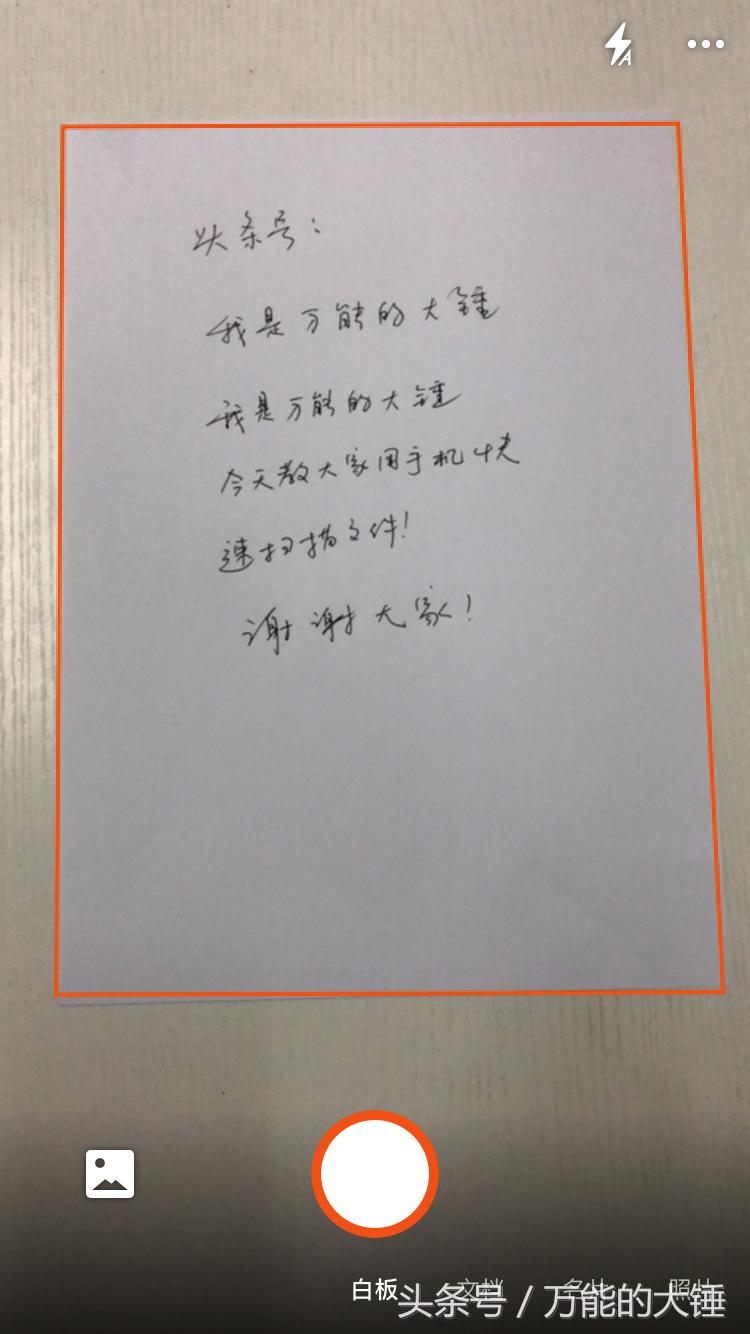 头条号：
我是万能的大锤
我是万能的大锤
今天教大家用手机快
速扫描文件！
谢谢大家！
白板 文档 名片 照片
头条号 / 万能的大锤